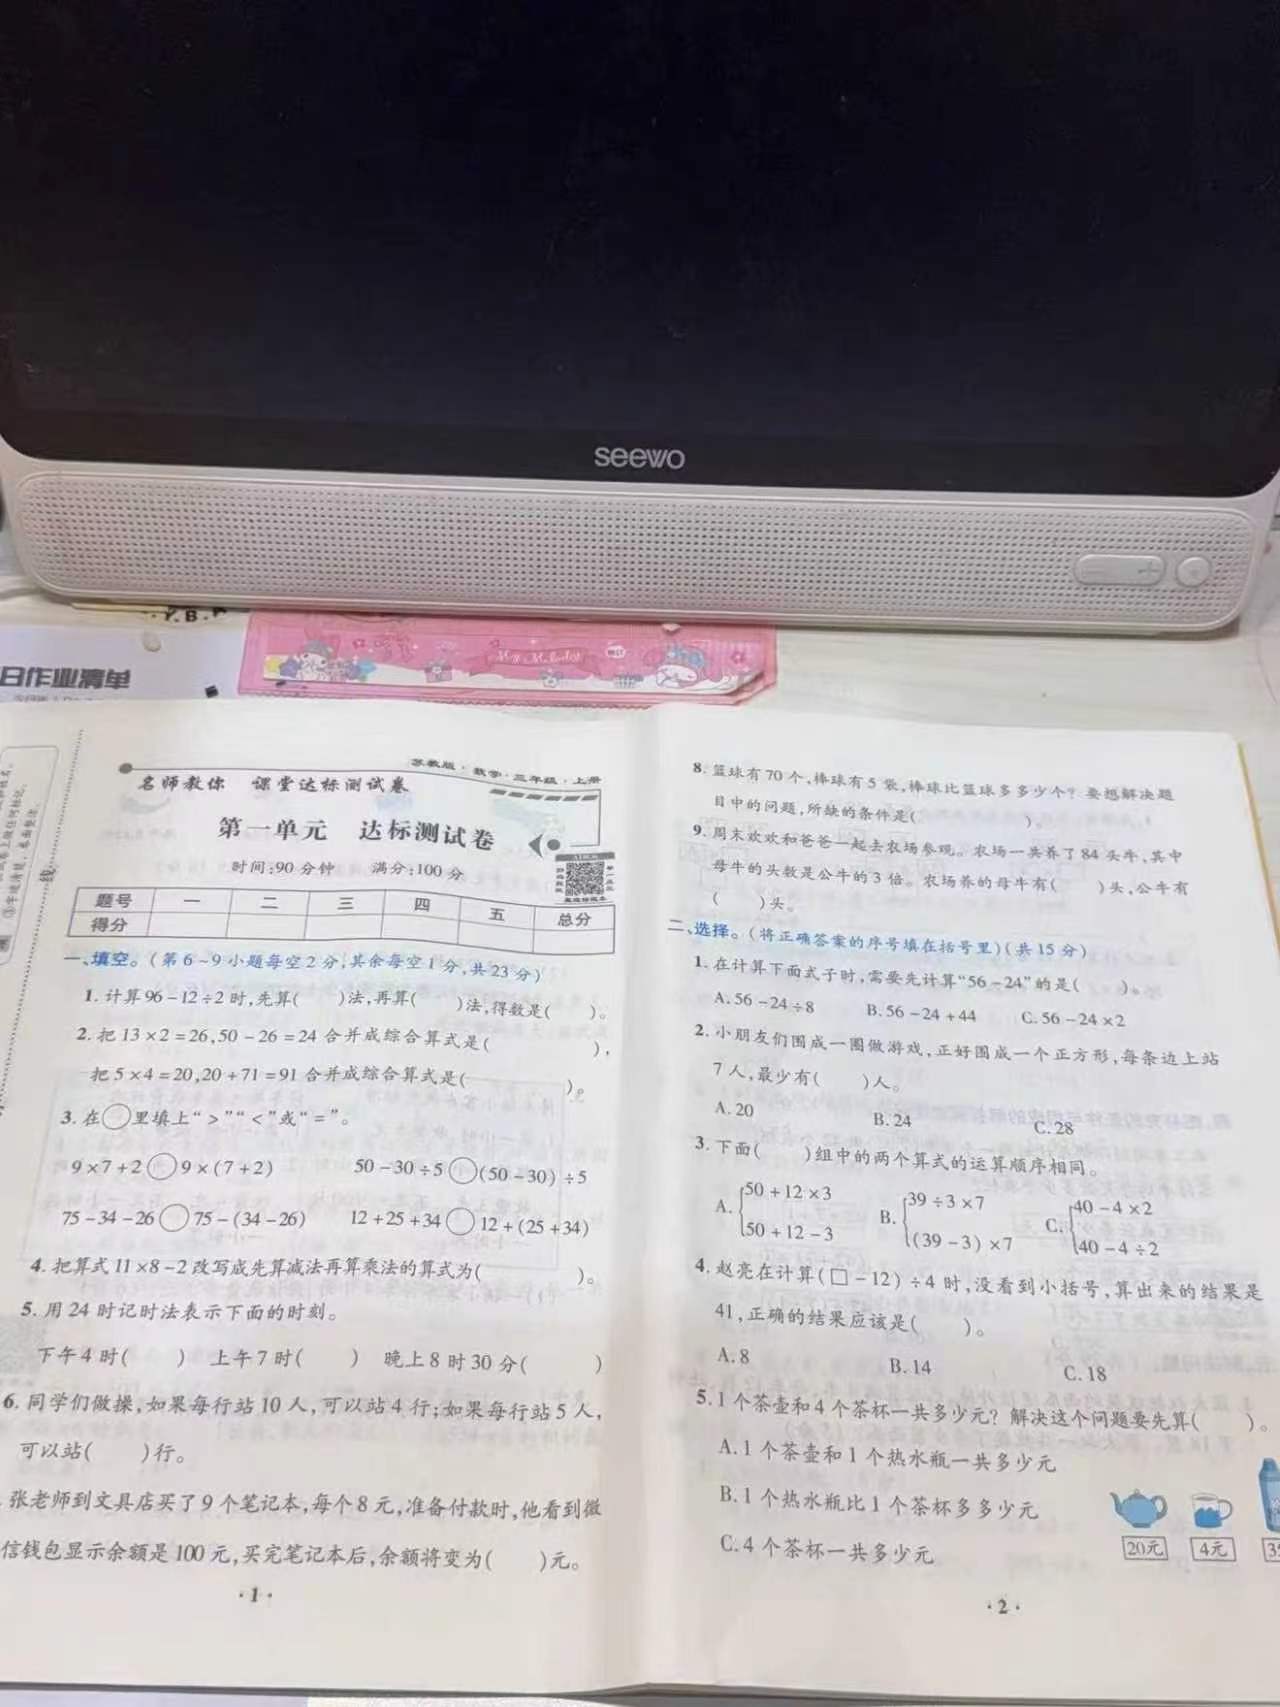 seewo
Y.B.
日作业清单
My Melody
苏教版·数学·三年级·上册
名师教你 课堂达标测试卷
第一单元 达标测试卷
时间:90分钟 满分:100分
题号 一 二 三 四 五 总分
得分
一、填空。(第6~9小题每空2分,其余每空1分,共23分)
1.计算96-12÷2时,先算( )法,再算( )法,得数是( )。
2.把13×2=26,50-26=24合并成综合算式是( ),
把5×4=20,20+71=91合并成综合算式是( )。
3.在○里填上“>”“<”或“=”。
9×7+2○9×(7+2) 50-30÷5○(50-30)÷5
75-34-26○75-(34-26) 12+25+34○12+(25+34)
4.把算式11×8-2改写成先算减法再算乘法的算式为( )。
5.用24时记时法表示下面的时刻。
下午4时( ) 上午7时( ) 晚上8时30分( )
6.同学们做操,如果每行站10人,可以站4行;如果每行站5人,
可以站( )行。
张老师到文具店买了9个笔记本,每个8元,准备付款时,他看到微
信钱包显示余额是100元,买完笔记本后,余额将变为( )元。
·1·
8.篮球有70个,棒球有5袋,棒球比篮球多多少个?要想解决题
目中的问题,所缺的条件是( )。
9.周末欢欢和爸爸一起去农场参观。农场一共养了84头牛,其中
母牛的头数是公牛的3倍。农场养的母牛有( )头,公牛有
( )头。
二、选择。(将正确答案的序号填在括号里)(共15分)
1.在计算下面式子时,需要先计算“56-24”的是( )。
A.56-24÷8 B.56-24+44 C.56-24×2
2.小朋友们围成一圈做游戏,正好围成一个正方形,每条边上站
7人,最少有( )人。
A.20 B.24 C.28
3.下面( )组中的两个算式的运算顺序相同。
A.{50+12×3 B.{39÷3×7 C.{40-4×2
50+12-3 (39-3)×7 40-4÷2
4.赵亮在计算(□-12)÷4时,没看到小括号,算出来的结果是
41,正确的结果应该是( )。
A.8 B.14 C.18
5.1个茶壶和4个茶杯一共多少元?解决这个问题要先算( )。
A.1个茶壶和1个热水瓶一共多少元
B.1个热水瓶比1个茶杯多多少元
C.4个茶杯一共多少元
20元 4元
·2·